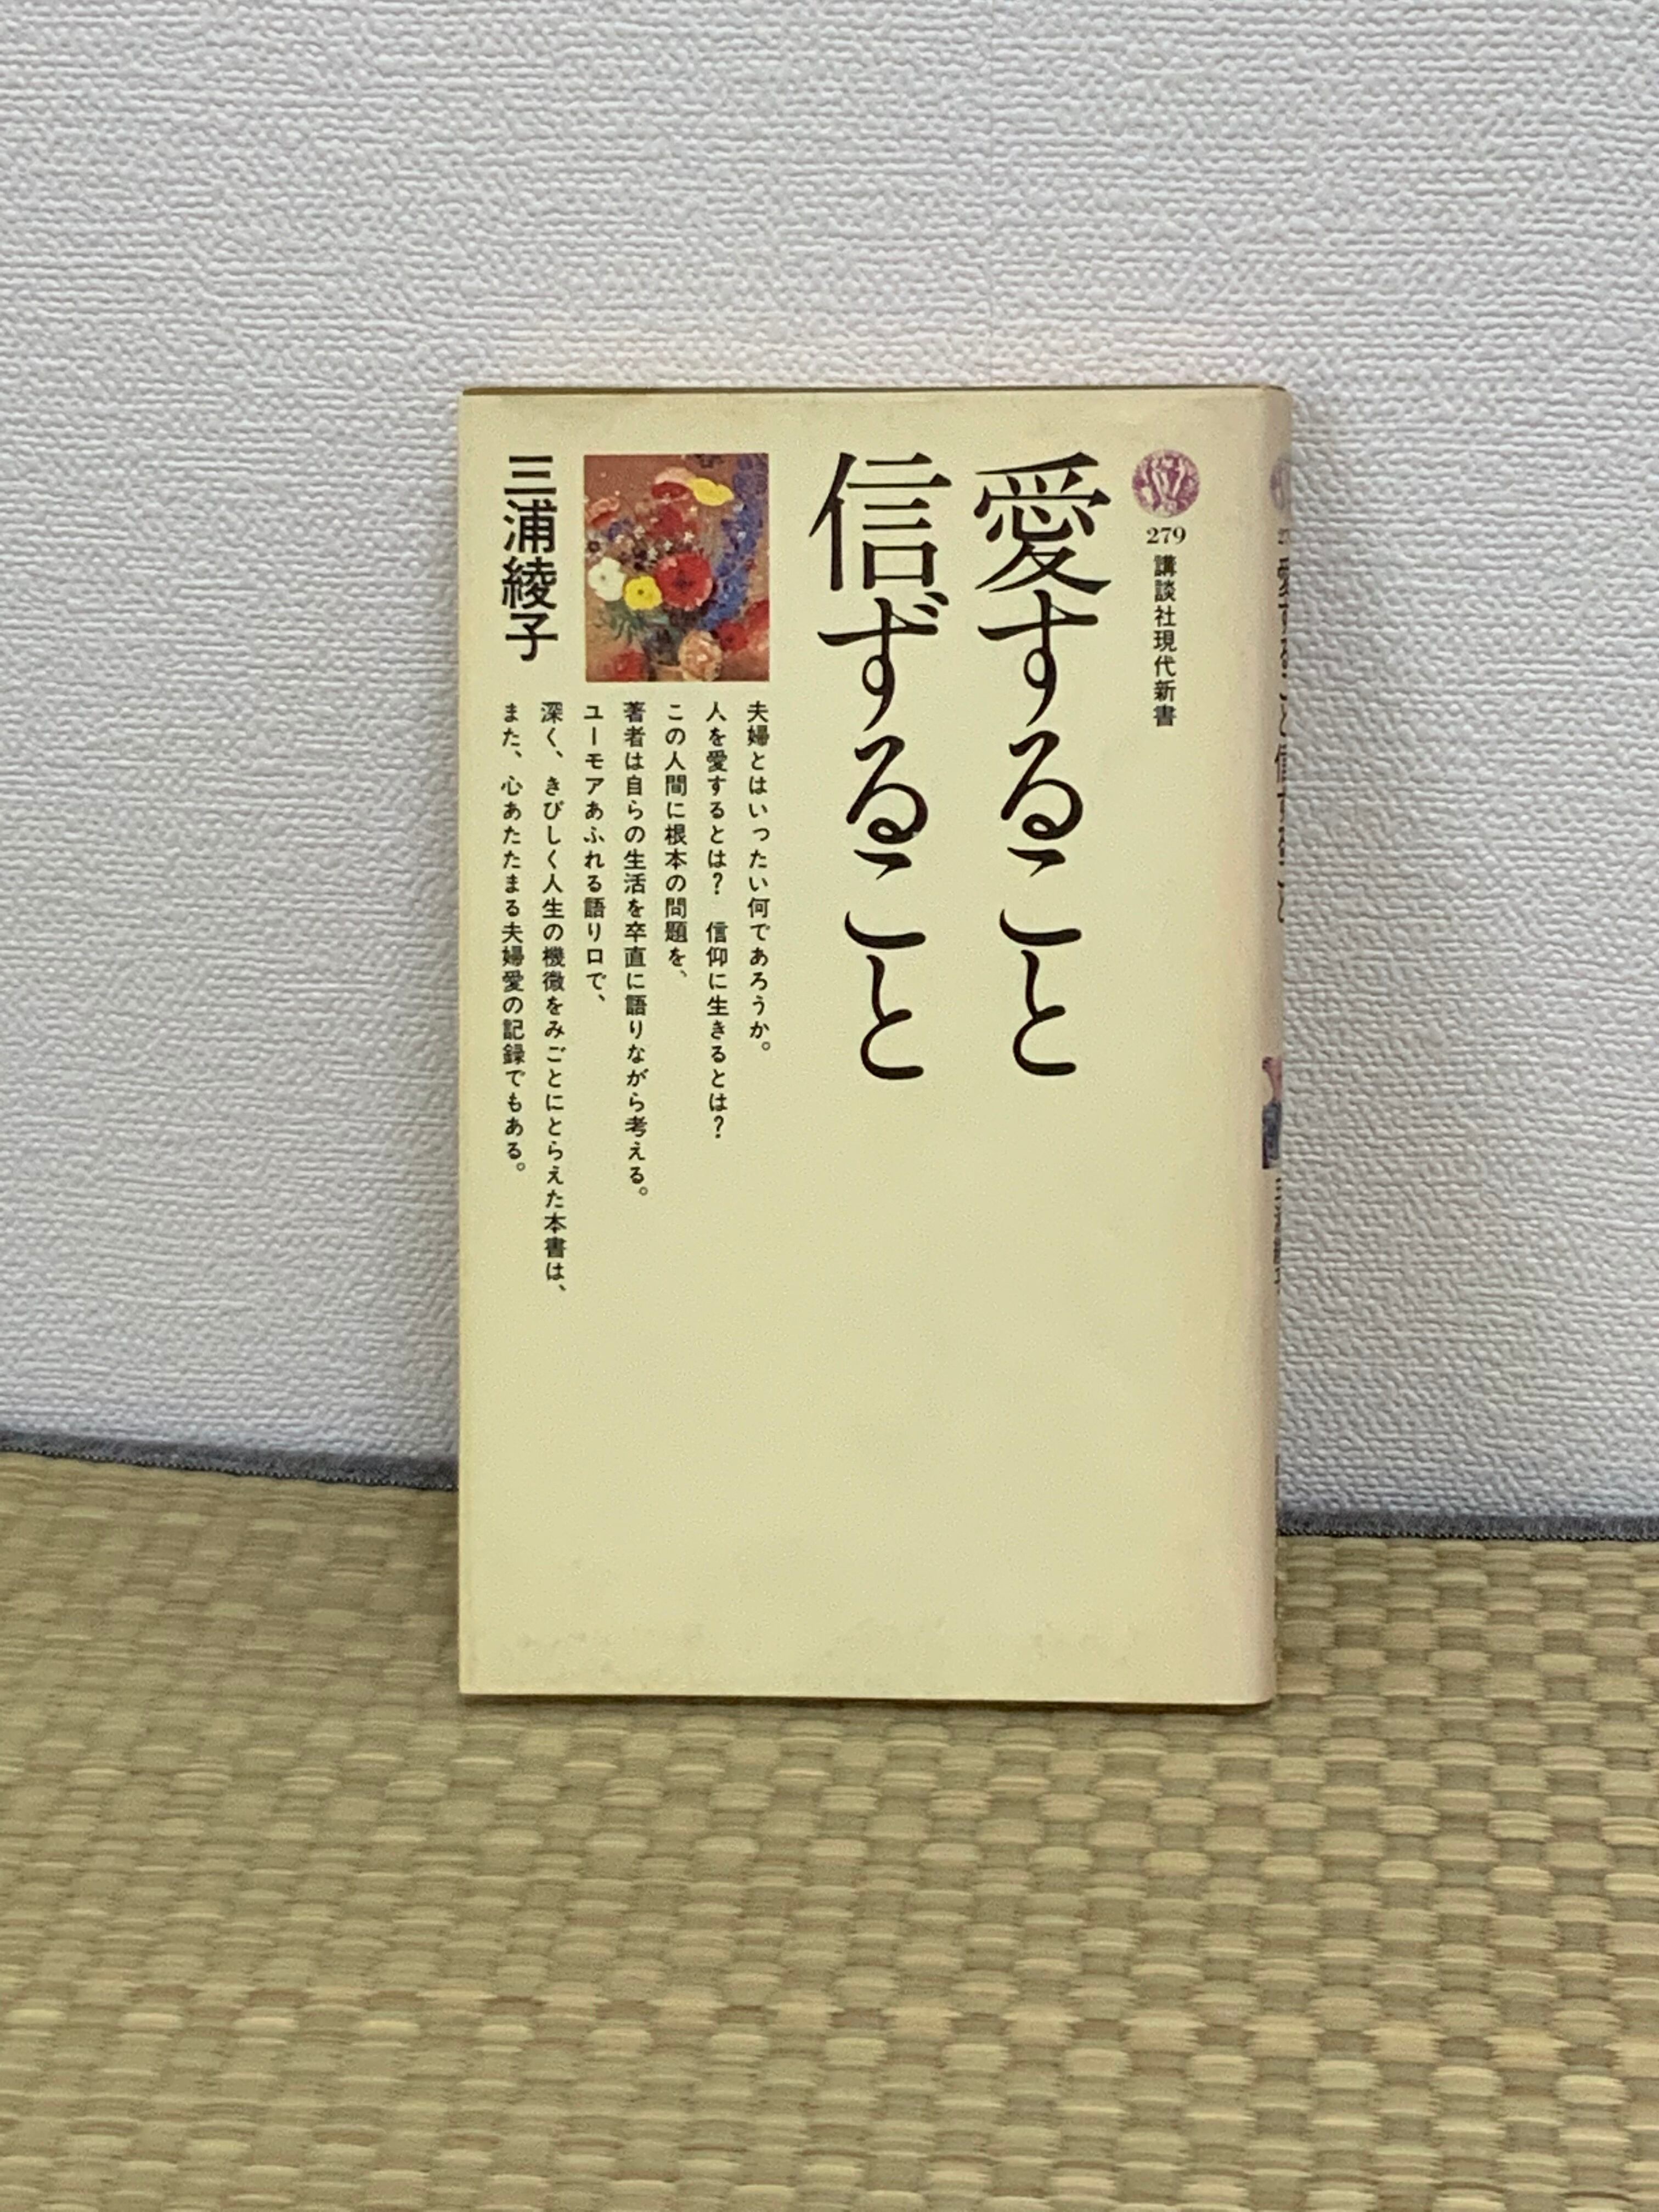 279
講談社現代新書
愛すること
信ずること
夫婦とはいったい何であろうか。
人を愛するとは？　信仰に生きるとは？
この人間に根本の問題を、
著者は自らの生活を卒直に語りながら考える。
ユーモアあふれる語り口で、
深く、きびしく人生の機微をみごとにとらえた本書は、
また、心あたたまる夫婦愛の記録でもある。
三浦綾子
愛すること信ずること